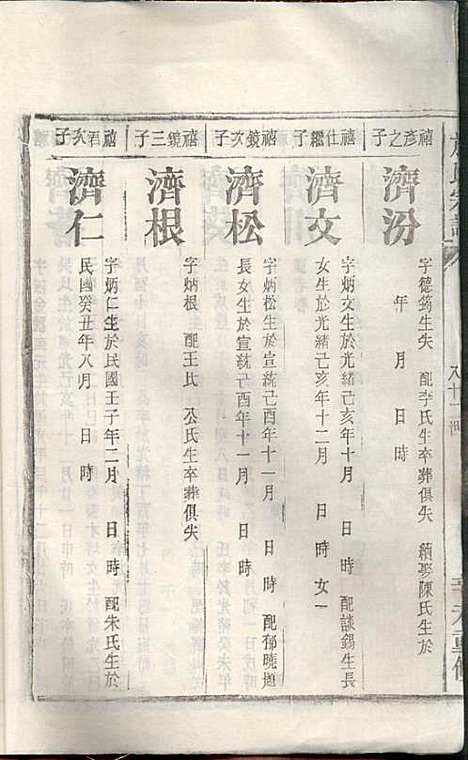 禧彥之子
濟汾
字德筠生失 配李氏生卒葬俱失 續娶陳氏生於
年 月 日 時
禧仕繼子
濟文
字炳文生於光緒己亥年十月 日 時 配談錫生長
女生於光緒己亥年十二月 日 時 女一
禧鏡次子
濟松
字炳松生於宣統己酉年十一月 日 時 配郁曉
長女生於宣統己酉年十一月 日 時
禧鏡三子
濟根
字炳根 配王氏 公氏生卒葬俱失
禧君次子
濟仁
字炳仁生於民國壬子年二月 日 時 配朱氏生於
民國癸丑年八月 日 時